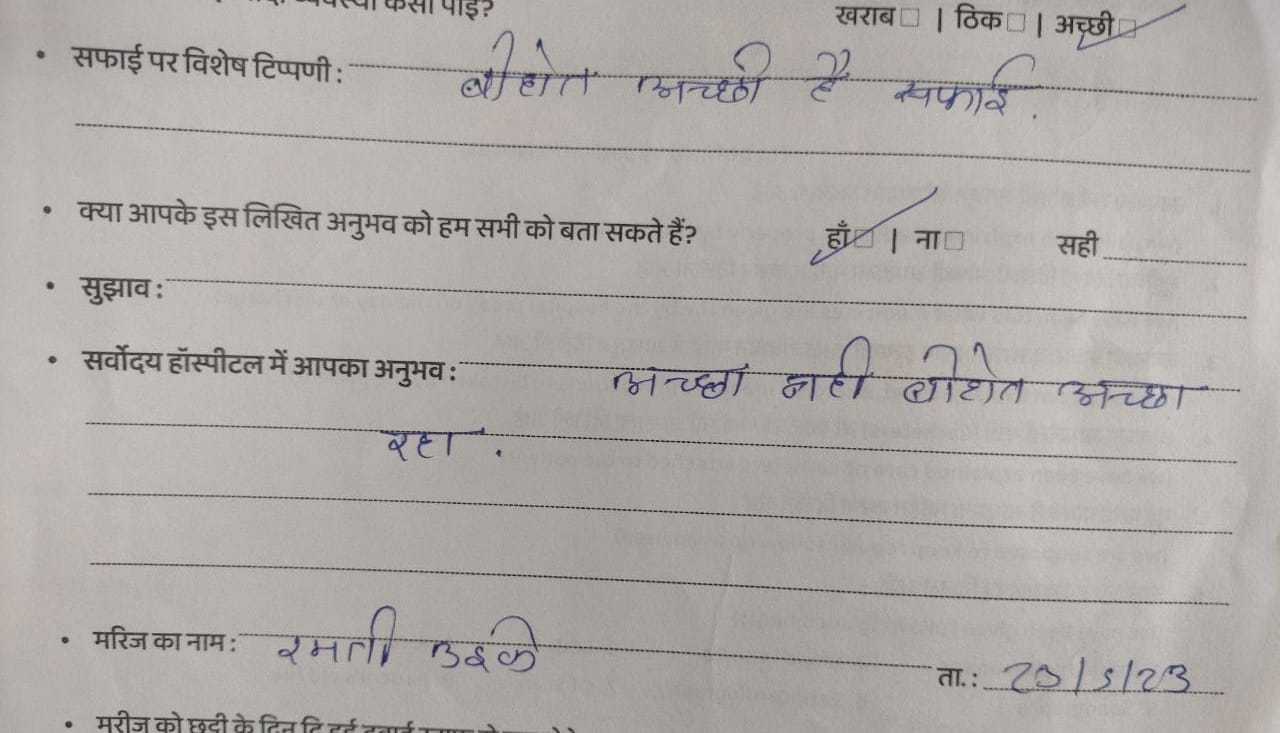 व्यवस्था कैसी पाई?
खराब□ | ठिक□ | अच्छी□
• सफाई पर विशेष टिप्पणी : बीहोत अच्छी है सफाई.
• क्या आपके इस लिखित अनुभव को हम सभी को बता सकते हैं? हाँ□ | ना□ सही
• सुझाव :
• सर्वोदय हॉस्पीटल में आपका अनुभव : अच्छा नही बीहोत अच्छा
रहा .
• मरिज का नाम : रमती उइके
ता.: 23/5/23
• मरीज को छुट्टी के दिन